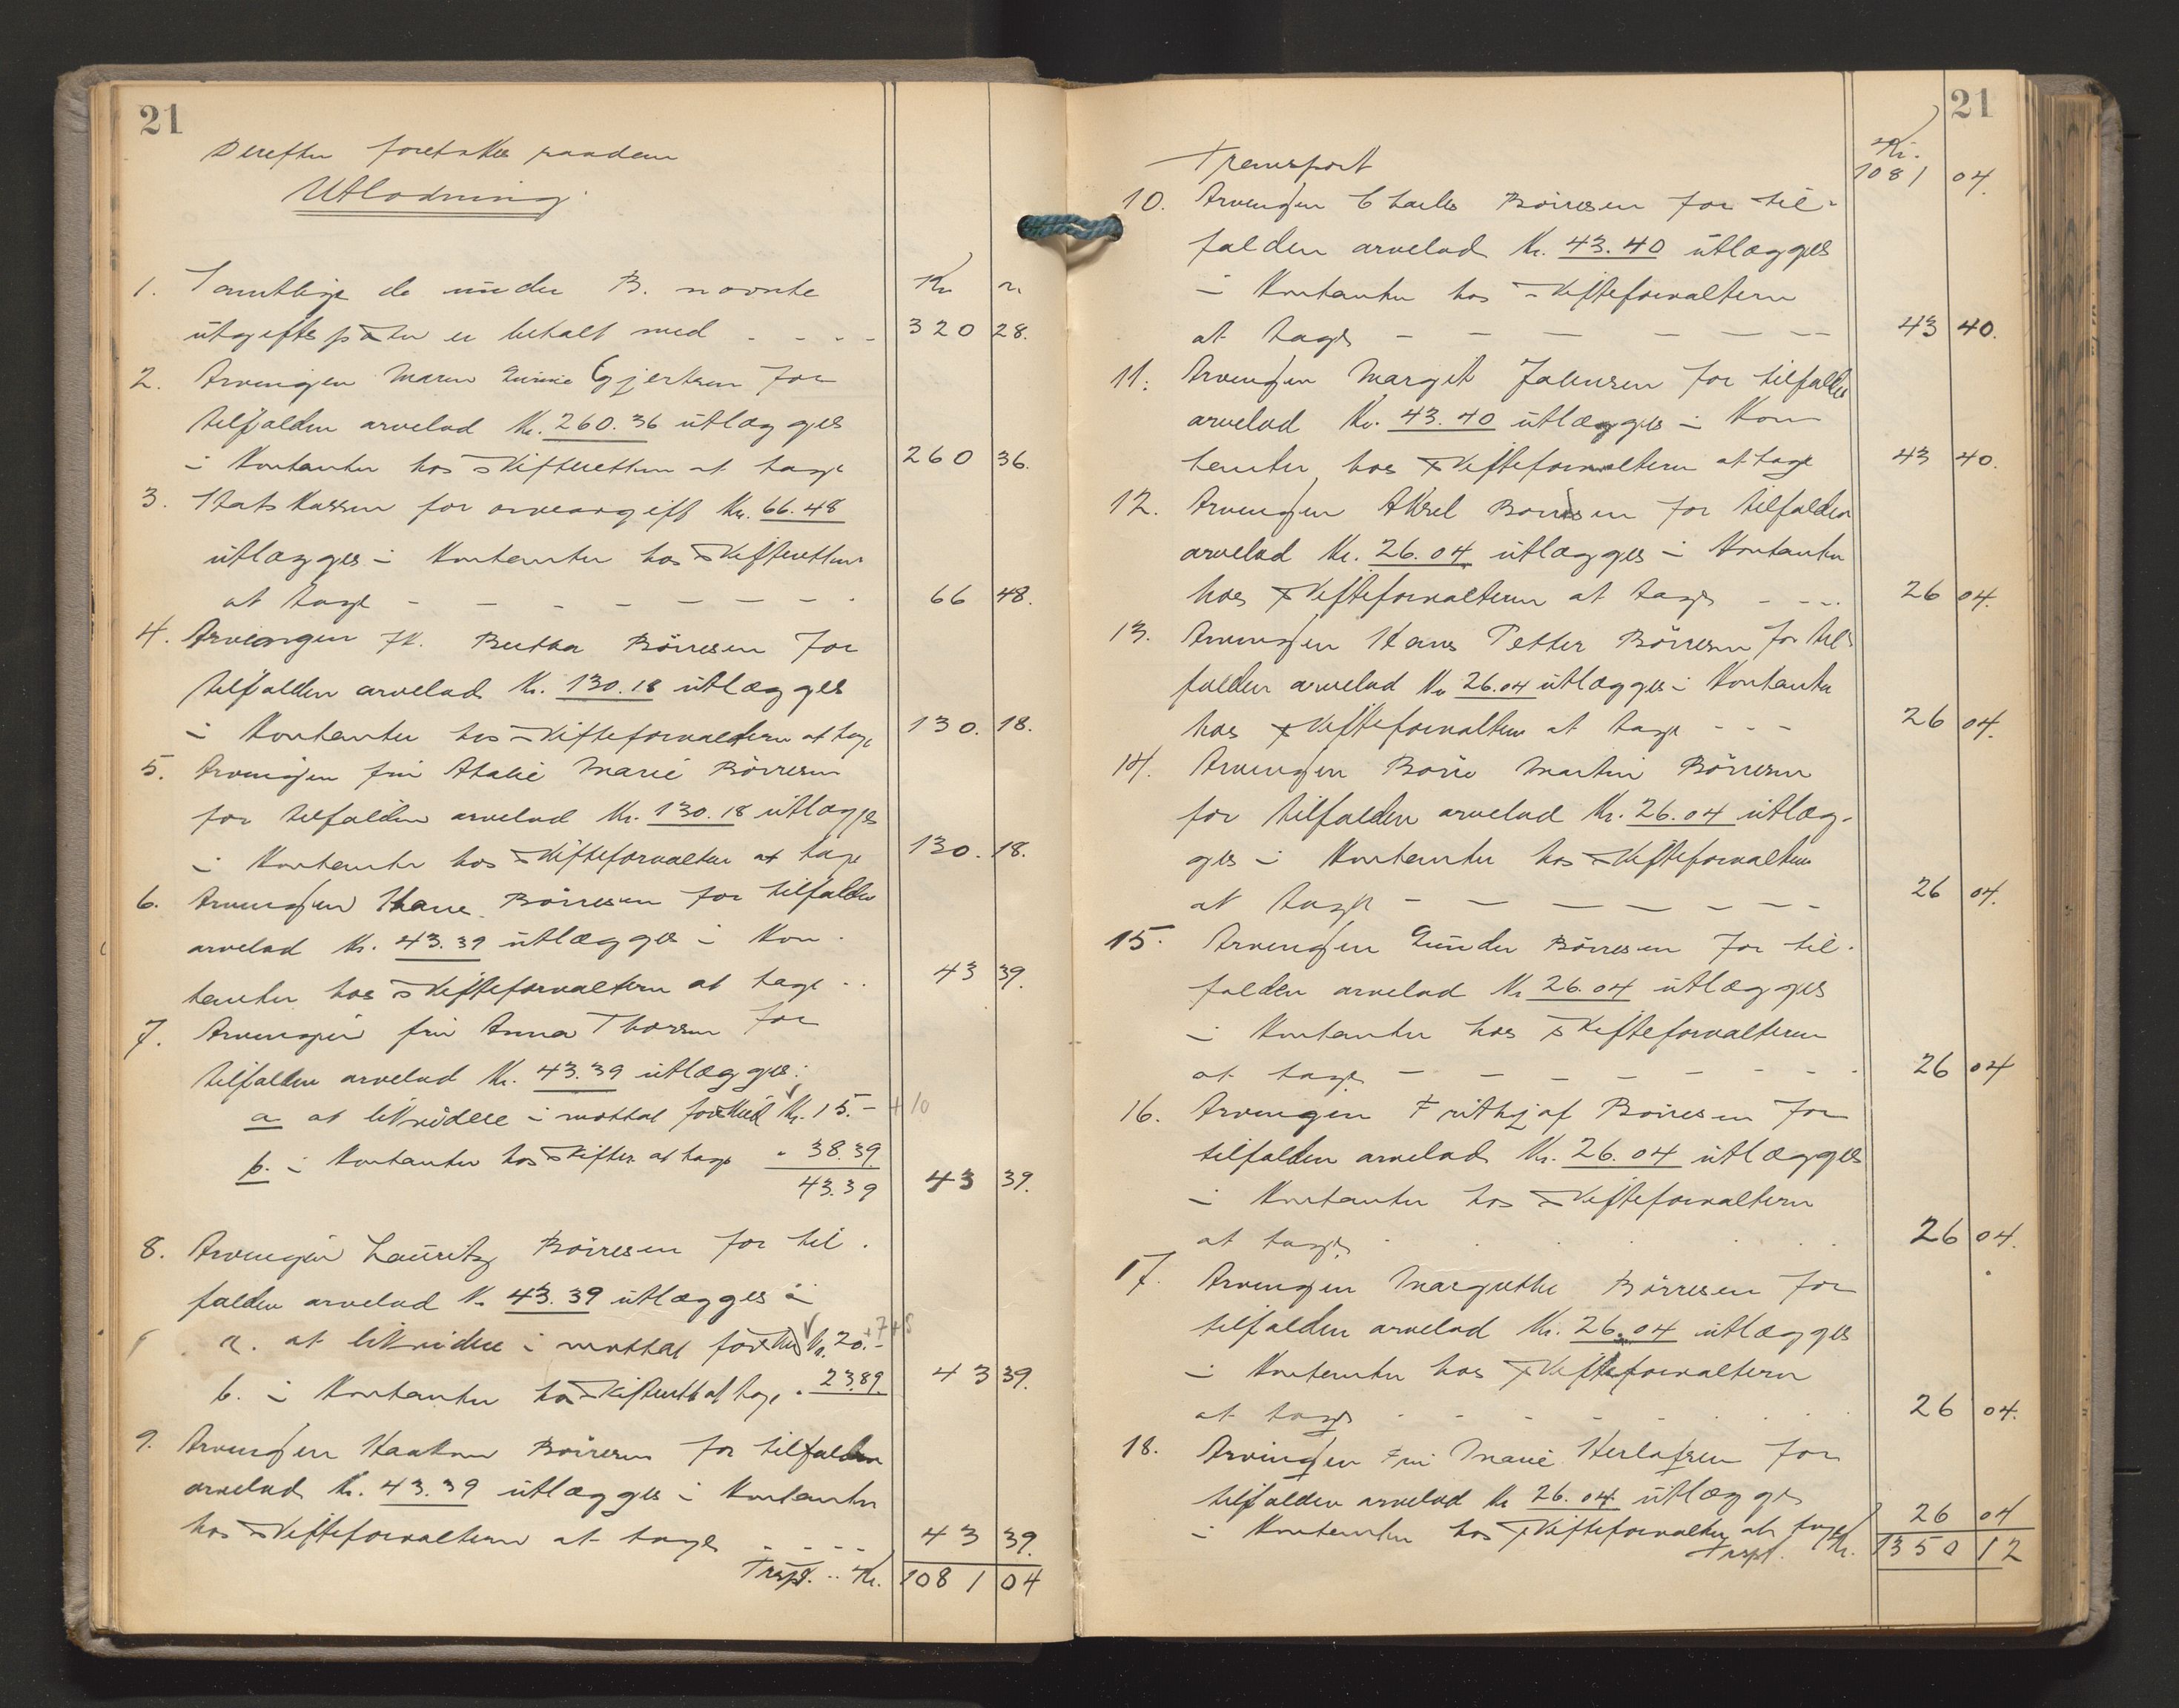 21
Derefter foretokes saadan
Utlodning
1. Samtlige de under B. nævnte Kr
utgiftsposter er betalt med - - - - 320 28.
2. Arvingen Maren Gjertsen for
tilfalden arvelod Kr. 260.36 utlægges
i Kontanter hos Skifteretten at tage 260 36.
3. Statskassen for arveavgift Kr. 66.48
utlægges i Kontanter hos Skifteretten
at tage - - - - - - - - 66 48.
4. Arvingen Fk. Bertha Börresen for
tilfalden arvelod Kr. 130.18 utlægges
i Kontanter hos Skifteforvalteren at tage 130. 18.
5. Arvingen fru Atalie Marie Börresen
for tilfalden arvelod Kr. 130.18 utlægges
i Kontanter hos Skifteforvalter at tage 130. 18.
6. Arvingen Hans Börresen for tilfalden
arvelod Kr. 43.39 utlægges i Kon-
tanter hos Skifteforvalteren at tage .. 43 39.
7. Arvingen fru Anna Thorsen for
tilfalden arvelod Kr. 43.39 utlægges:
a at likvidere i mottat forskud Kr. 15.- + 10
b. i Kontanter hos Skifter. at tage " 38.39
43.39 43 39.
8. Arvingen Lauritz Börresen for til-
falden arvelod Kr. 43.39 utlægges i
a. at likvidere i mottat forskud Kr. 20.- +7+5
b. i Kontanter hos Skifterett at tage " 23.89. 43 39.
9. Arvingen Haakon Börresen for tilfalden
arvelod Kr. 43.39 utlægges i Kontanter
hos Skifteforvalteren at tage - - - - 43 39.
Trspt. .. Kr. 1081 04
21
Transport Kr. 1081 04.
10. Arvingen Charles Börresen for til-
falden arvelod Kr. 43.40 utlægges
i Kontanter hos Skifteforvalteren
at tage - - - - - - - 43 40.
11. Arvingen Margit Johnsen for tilfalden
arvelod Kr. 43.40 utlægges i Kon
tanter hos Skifteforvalteren at tage 43 40.
12. Arvingen Aksel Börresen for tilfalden
arvelod Kr. 26.04 utlægges i Kontanter
hos Skifteforvalteren at tage - - - 26 04.
13. Arvingen Hans Petter Börresen for til-
falden arvelod Kr 26.04 utlægges i Kontanter
hos Skifteforvalteren at tage - - - 26 04.
14. Arvingen Börre Martin Börresen
for tilfalden arvelod Kr. 26.04 utlæg-
ges i Kontanter hos Skifteforvalteren
at tage - - - - - - - 26 04.
15. Arvingen Gunder Börresen for til-
falden arvelod Kr 26.04 utlægges
i Kontanter hos Skifteforvalteren
at tage - - - - - - - - 26 04
16. Arvingen Frithjof Börresen for
tilfalden arvelod Kr. 26.04 utlægges
i Kontanter hos Skifteforvalteren
at tage . . . . . 26 04.
17. Arvingen Margrethe Börresen for
tilfalden arvelod Kr. 26.04 utlægges
i Kontanter hos Skifteforvalteren
at tage - - - - - - 26 04.
18. Arvingen Fru Marie Herlofsen for
tilfalden arvelod Kr 26.04 utlægges
i Kontanter hos Skifteforvalter at tage 26 04
Trspt. Kr. 1350 12